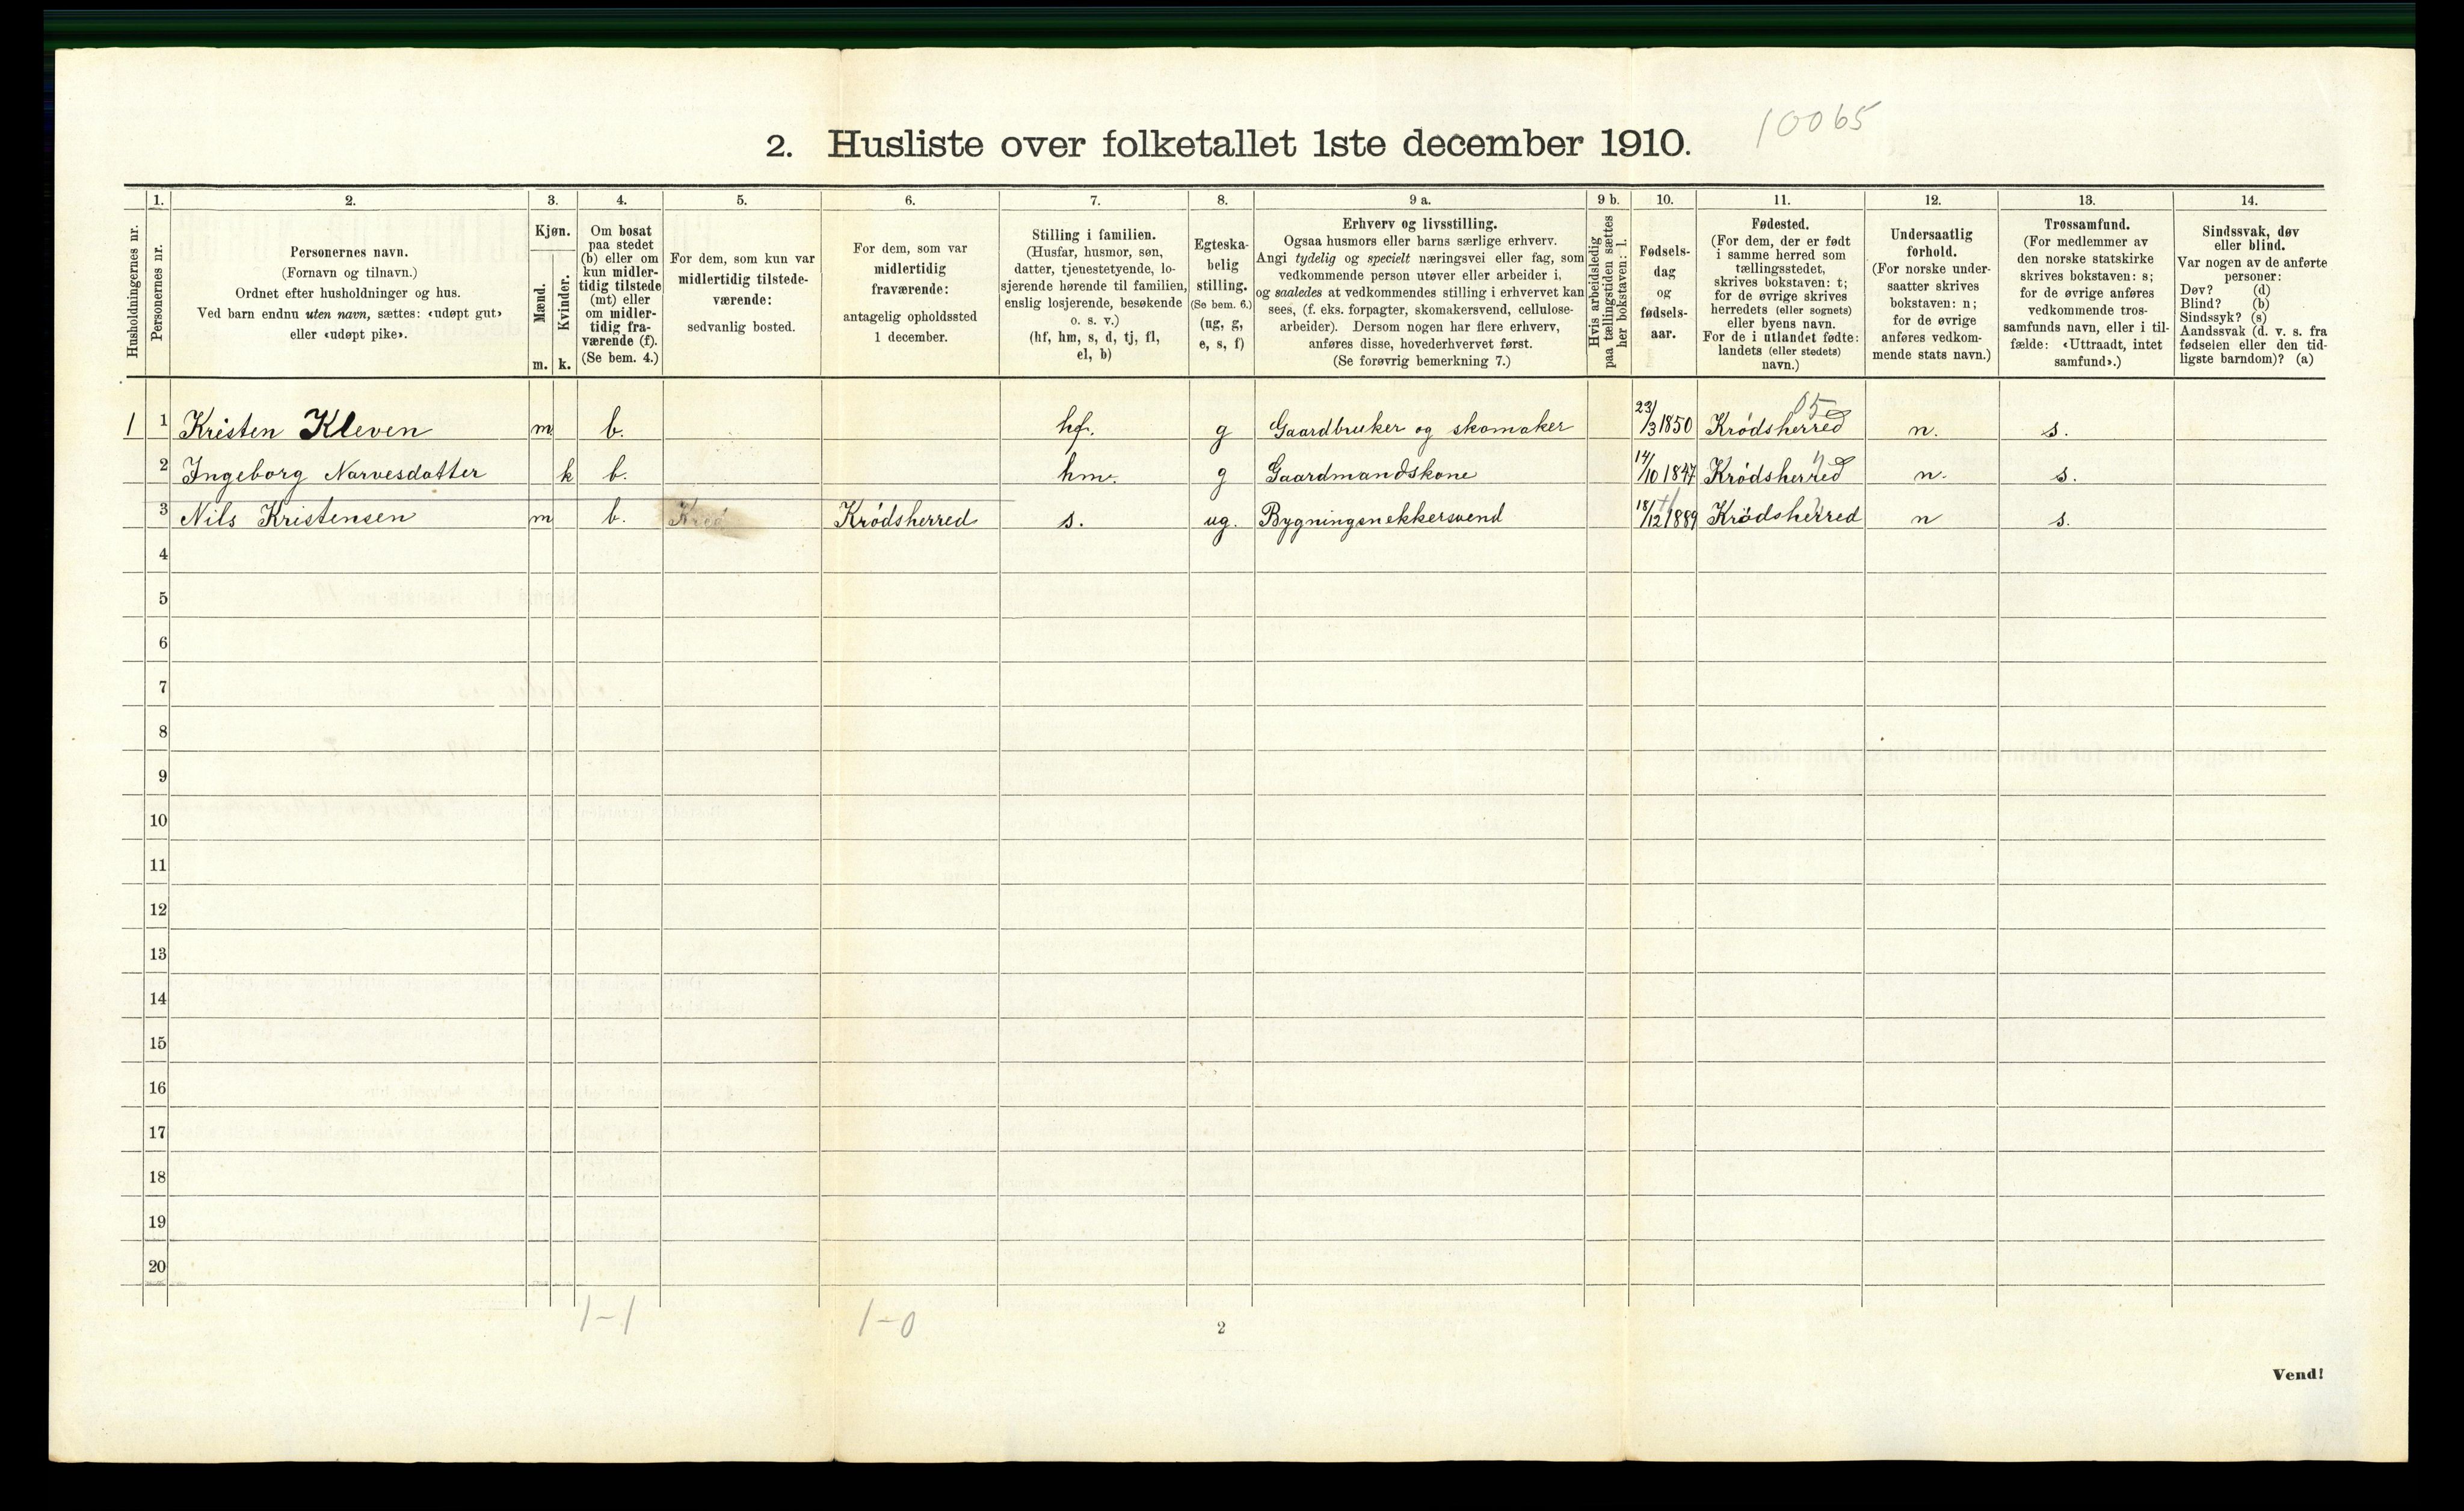 10065
2. Husliste over folketallet 1ste december 1910.
Husholdningernes nr.
1.
Personernes nr.
2.
Personernes navn.
(Fornavn og tilnavn.)
Ordnet efter husholdninger og hus.
Ved barn endnu uten navn, sættes: «udøpt gut»
eller «udøpt pike».
3.
Kjøn.
Mænd.
m.
Kvinder.
k.
4.
Om bosat
paa stedet
(b) eller om
kun midler-
tidig tilstede
(mt) eller
om midler-
tidig fra-
værende (f).
(Se bem. 4.)
5.
For dem, som kun var
midlertidig tilstede-
værende:
sedvanlig bosted.
6.
For dem, som var
midlertidig
fraværende:
antagelig opholdssted
1 december.
7.
Stilling i familien.
(Husfar, husmor, søn,
datter, tjenestetyende, lo-
sjerende hørende til familien,
enslig losjerende, besøkende
o. s. v.)
(hf, hm, s, d, tj, fl,
el, b)
8.
Egteska-
belig
stilling.
(Se bem. 6.)
(ug, g,
e, s, f)
9 a.
Erhverv og livsstilling.
Ogsaa husmors eller barns særlige erhverv.
Angi tydelig og specielt næringsvei eller fag, som
vedkommende person utøver eller arbeider i,
og saaledes at vedkommendes stilling i erhvervet kan
sees, (f. eks. forpagter, skomakersvend, cellulose-
arbeider). Dersom nogen har flere erhverv,
anføres disse, hovederhvervet først.
(Se forøvrig bemerkning 7.)
9 b.
Hvis arbeidsledig
paa tællingstiden sættes
her bokstaven: l.
10.
Fødsels-
dag
og
fødsels-
aar.
11.
Fødested.
(For dem, der er født
i samme herred som
tællingsstedet,
skrives bokstaven: t;
for de øvrige skrives
herredets (eller sognets)
eller byens navn.
For de i utlandet fødte:
landets (eller stedets)
navn.)
12.
Undersaatlig
forhold.
(For norske under-
saatter skrives
bokstaven: n;
for de øvrige
anføres vedkom-
mende stats navn.)
13.
Trossamfund.
(For medlemmer av
den norske statskirke
skrives bokstaven: s;
for de øvrige anføres
vedkommende tros-
samfunds navn, eller i til-
fælde: «Uttraadt, intet
samfund».)
14.
Sindssvak, døv
eller blind.
Var nogen av de anførte
personer:
Døv? (d)
Blind? (b)
Sindssyk? (s)
Aandssvak (d. v. s. fra
fødselen eller den tid-
ligste barndom)? (a)
1 1 Kristen Kleven m b. hf. g Gaardbruker og skomaker 23/3 1850 Krødsherred n. s.
2 Ingeborg Narvesdatter k b. hm. g Gaardmandskone 14/10 1847 Krødsherred n. s.
3 Nils Kristensen m b. Krødsherred s. ug. Bygningsnekkersvend 18/12 1889 Krødsherred n s.
4
5
6
7
8
9
10
11
12
13
14
15
16
17
18
19
20
1-1 1-0
2
Vend!